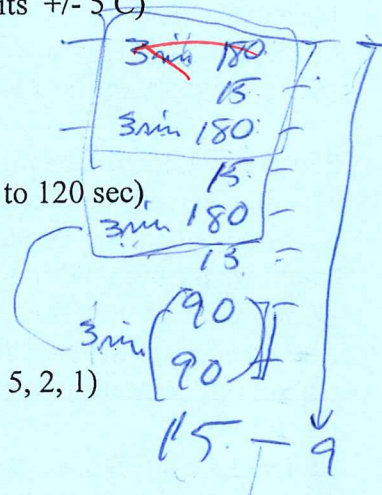 its +/- 5 C)
3min 180
15
3min 180
15
to 120 sec)
3min 180
15
90
3min
90
5, 2, 1)
15 - 9